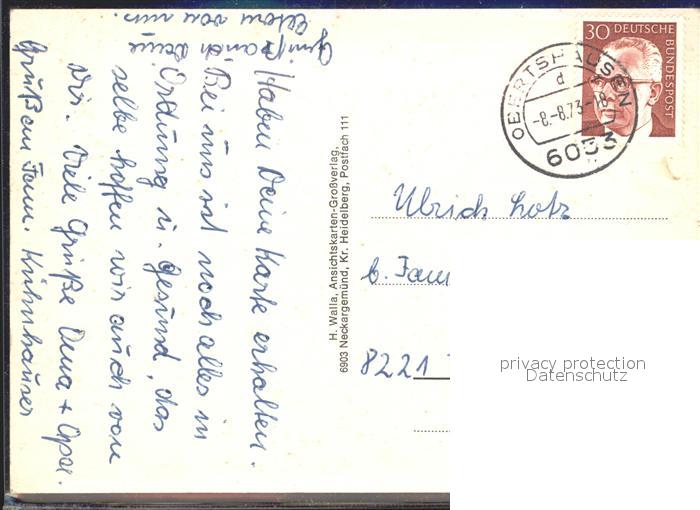 Haben Deine Karte erhalten.
Bei uns ist noch alles in
Ordnung u. gesund, das
selbe hoffen wir auch von
Dir. Viele Grüße Oma + Opa.
Grüß an Fam. Kühnhauser
Grüß auch Deine
Eltern von uns.
H. Walla, Ansichtskarten-Großverlag,
6903 Neckargemünd, Kr. Heidelberg, Postfach 111
30 DEUTSCHE
BUNDESPOST
OBERTSHAUSEN
d
-8.-8.73-18
6053
Ulrich Lotz
b. Fam
8221
privacy protection
Datenschutz